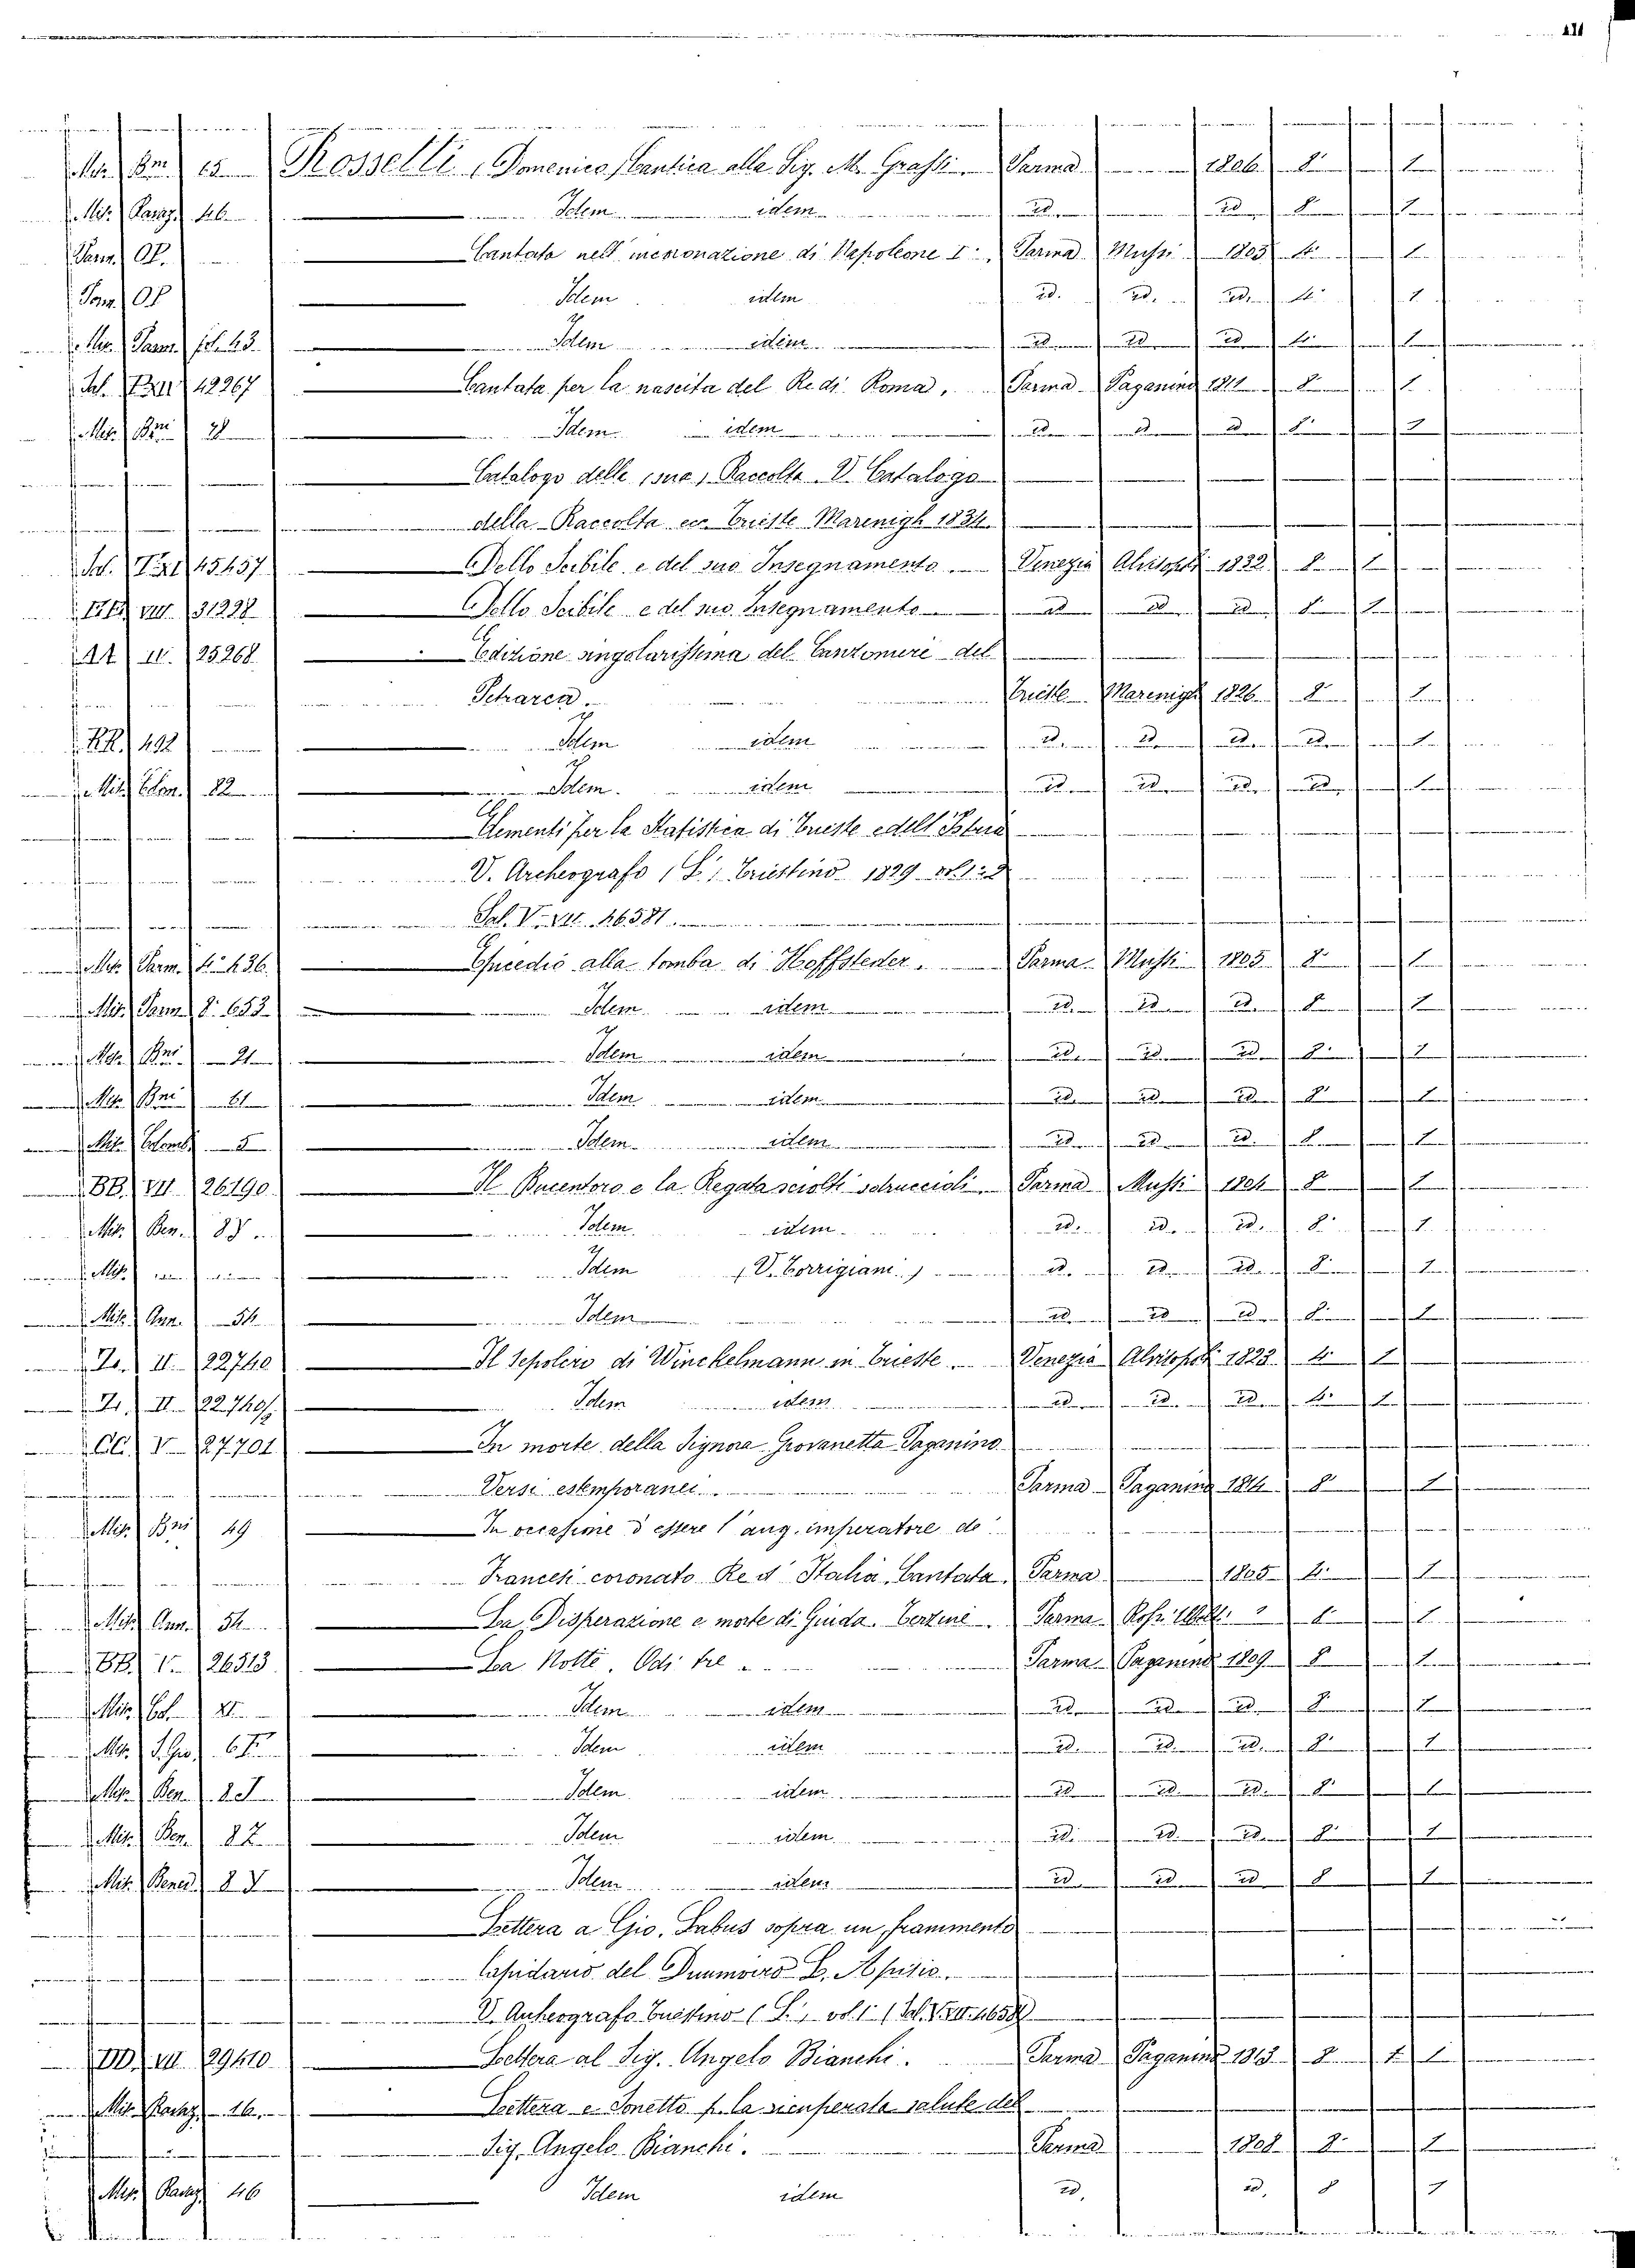 Mis. Bni 15 Rossetti, Domenico, Cantica alla Sig. M. Grassi. Parma 1806 8° 1
Mis. Raag. 46 Idem idem id. id. 8 1
Parm. Op. Cantata nell' incoronazione di Napoleone I°. Parma Mussi 1805 4° 1
Parm. Op. Idem idem id. id. id. 4° 1
Mis. Parm. fol. 43 Idem idem id id id 4° 1
Sal. 42267 Cantata per la nascita del Re di Roma. Parma Paganino 1811 8° 1
Mis. Bni 28 Idem idem id id id 8° 1
Catalogo delle (sue) Raccolte V. Catalogo
della Raccolta ec. Trieste Marenigh 1834.
Sal. 45457 Dello Scibile e del suo Insegnamento. Venezia Alvisopoli 1832 8° 1
VIII. 31298 Dello Scibile e del suo Insegnamento id id id 8° 1
25268 Edizione singolarissima del Canzoniere del
Petrarca. Trieste Marenigh 1826 8° 1
RR. 492 Idem idem id. id. id. id. 1
Mis. Colom. 22 Idem idem id. id. id. id. 1
Elementi per la Statistica di Trieste e dell' Istria
V. Archeografo (L') Triestino 1829
Sal. V. VII. 46581.
Mis. Parm. 4° 436 Epicedio alla tomba di Hoffsteder. Parma Mussi 1805 8° 1
Mis. Parm. 8° 653 Idem idem id. id. id. 8° 1
Mis. Bni. 21 Idem idem id. id. id. 8° 1
Mis. Bni 61 Idem idem id. id. id. 8° 1
Mis. Colomb. 5 Idem idem id. id. id. 8° 1
BB. VII. 26190 Il Bucentoro e la Regata sciolti sdruccioli. Parma Mussi 1804 8° 1
Mis. Ben. 8 Idem idem id. id. id. 8° 1
Mis. Idem (V. Corrigiani) id. id. id. 8° 1
Mis. Ann. 54 Idem id. id. id. 8° 1
II. 22740 Il Sepolcro di Winckelmann in Trieste. Venezia Alvisopoli 1823 4° 1
II. 22740 Idem idem id. id. id. 4° 1
CC. V 27701 In morte della Signora Giovanetta Paganino
Versi estemporanei. Parma Paganino 1814 8° 1
Mis. Bni 49 In occasione d'essere l'aug. imperatore de'
Francesi coronato Re d' Italia. Cantata. Parma 1805 4° 1
Mis. Ann. 54 La Disperazione e morte di Giuda. Terzine. Parma 8° 1
BB. V. 26513 La Notte. Odi tre. Parma Paganino 1809 8 1
Mis. Idem idem id. id. id. 8° 1
Mis. S. Gio. 6 Idem idem id. id. id. 8° 1
Mis. Ben. 8 Idem idem id. id. id. 8° 1
Mis. Ben. 8 Idem idem id. id. id. 8° 1
Mis. Bened. 8 Idem idem id. id. id. 8 1
Lettera a Gio. Labus sopra un frammento
lapidario del Duumviro L. Apisio.
V. Archeografo Triestino (L') vol. 1°
DD. VII. 29410 Lettera al Sig. Angelo Bianchi. Parma Paganino 1813 8° 1 1
Mis. 16 Lettera e Sonetto p. la ricuperata salute del
Sig. Angelo Bianchi. Parma 1808 8° 1
Mis. 46 Idem idem id. id. 8 1